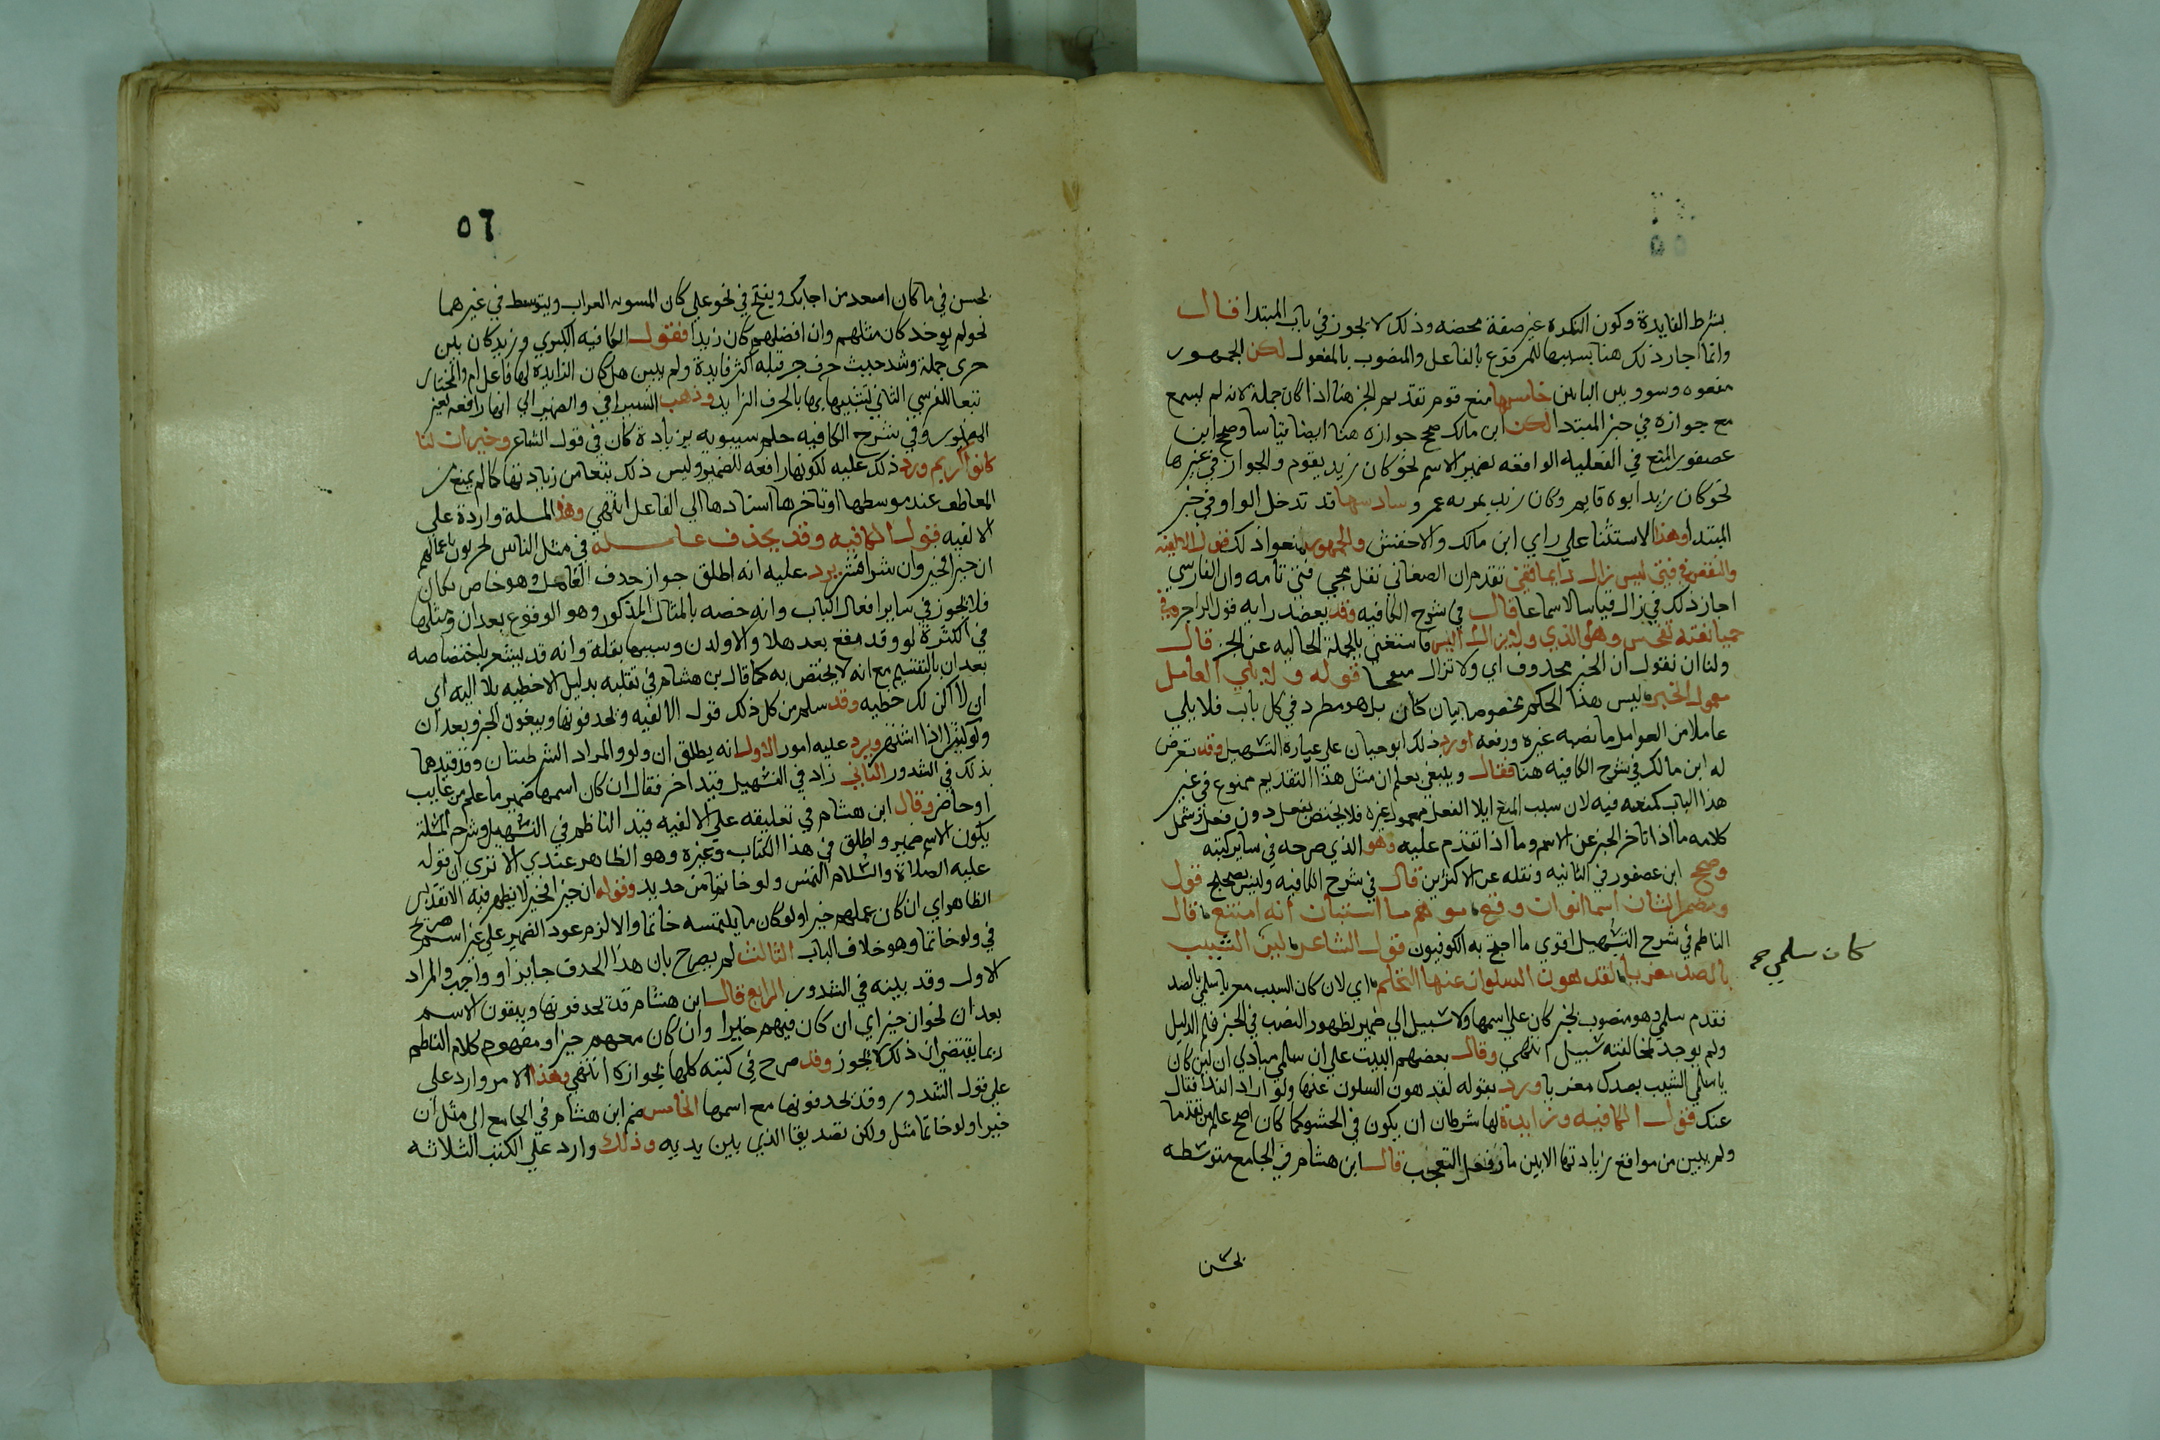 ٥٥
بشرط الفايدة وكون النكره غير صفة محضه وذلك لا يجوز في باب المبتدا قال
وانما اجاز ذلك هنا لشبههما للمرفوع بالفاعل والمنصوب بالمفعول لكن الجمهور
منعوه وسووا بين البابين خامسها منع قوم تقديم الخبر هنا اذا كان جملة لانه لم يسمع
مع جوازه في خبر المبتدا لكن ابن مالك صحح جوازه هنا ايضا قياسا وصحح ابن
عصفور المنع في الفعليه الرافعه لضمير الاسم نحو كان زيد يقوم والجواز في غيرها
نحو كان زيد ابوه قايم وكان زيد يمر به عمرو سادسها قد تدخل الواو في خبر
المبتدا وهذا الاستثنا علي راي ابن مالك والاخفش والجمهور منعوا ذلك قول الالفيه
والنقص في فتي ليس زال دايما قفي تقدم ان الصغاني نقل مجي فتي تامه وان الفارسي
اجاز ذلك في زال قياسا لا سماعا قال في شرح الكافيه وقد يعضد رايه قول الراجز وفي
حميا بغته تفجس وهو الذي ولا يزال البر فاستغني بالجملة الحاليه عن الخبر قال
ولنا ان نقول ان الخبر محذوف اي ولا تزال قوله ولا يلي العامل
معمول الخبر ليس هذا الحكم مخصوصا بباب كان بل هو مطرد في كل باب فلا يلي
عاملا من العوامل ما نصبه غيره ورفعه اورد ذلك ابو حيان علي عبارة التسهيل وقد تعرض
له ابن مالك في شرح الكافيه هنا فقال وينبغي يعلم ان مثل هذا التقديم ممنوع في غير
هذا الباب كمنعه فيه لان سبب المنع ايلا الفعل معمول غيره فلا يختص بفعل دون فعل وشمل
كلامه ما اذا تاخر الخبر عن الاسم وما اذا تقدم عليه وهو الذي صرح به في ساير كتبه
وصحح ابن عصفور في الثانيه ونقله عن الاكثرين قال في شرح الكافيه وليس بصحيح قول
ومضمر الشان اسما انوان وقع موهم ما استبان انه امتنع قال
الناظم في شرح التسهيل اقوي ما احتج به الكوفيون قول الشاعر لين الشيب
بالصد مغريا لقد هون السلوان عنها التحلم اي لان كان الشيب مغريا سلمي بالصد
كان سلمي صح
فقدم سلمي وهو منصوب بخبر كان علي اسمها ولا سبيل الي ضمير لظهور النصب في الخبر فلم الدليل
ولم يوجد لمخالفته سبيل انتهي وقال بعضهم البيت علي ان سلمي منادي اي لين كان
يا سلمي الشيب بصدك مغريا ورد بقوله لقد هون السلوان عنها ولو اراد الندا لقال
عنك قول الكافيه وزايدة لها شرطان ان يكون في الحشو كما كان اصح علم من تقدما
ولم يبين من مواقع زيادتها الا بين ما وفعل التعجب قال ابن هشام في الجامع متوسطه
يحسن
٥٦
يحسن في ما كان اسعد من اجابك ويقبح في نحو علي كان المسومه العراب ويتوسط في غيرهما
نحو لم يوجد كان مثلهم وان افضلهم كان زيدا فقول الكافيه الكبري وزيد كان بين
جزي جملة وشذ حيث حرف جر قبله اكثر فايدة ولم يبين هل كان الزايدة لها فاعل ام لا والمختار
تبعا للفارسي الثاني لشبهها بالحرف الزايد وذهب السيرافي والصيمري الي انها رافعه لضمير
المصدر وفي شرح الكافيه حكم سيبويه بزيادة كان في قول الشاعر وجيران لنا
كانوا كريم ورد ذلك عليه لكونها رافعه للضمير وليس ذلك مانعا من زيادتها كما لم يمنع من
العاطف عند توسطها او تاخرها اسنادها الي الفاعل انتهي وهذه المسلة واردة علي
الالفيه قول الكافيه وقد يحذف عامله في مثل الناس مجزيون باعمالهم
ان خيرا فخير وان شرا فشر يرد عليه انه اطلق جواز حذف العامل وهو خاص بكان
فلا يجوز في ساير افعال الباب وانه خصه بالمثال المذكور وهو الوقوع بعد ان ومثلها
في الكثرة لو وقد يقع بعد هلا والا ولدن وشبهها بقلة وانه قد يشعر باختصاصه
بعد ان بالتقسيم مع انه لا يختص به كما قال بن هشام في تعليقه بدليل الا حظيه فلا اليه اي
ان لا اكن لك حظيه وقد سلم من كل ذلك قول الالفيه ويحذفونها ويبقون الخبر وبعد ان
ولو كثيرا ذا اشتهر ويرد عليه امور الاول انه يطلق ان ولو والمراد الشرطيتان وقد قيدهما
بذلك في الشذور الثاني زاد في التسهيل قيدا اخر فقال ان كان اسمها ضمير ما علم من غايب
او حاضر وقال ابن هشام في تعليقه علي الالفيه قيد الناظم في التسهيل وشرح المسلة
بكون الاسم ضمير واطلق في هذا الكتاب وغيره وهو الظاهر عندي الا تري ان قوله
عليه الصلاة والسلام التمس ولو خاتما من حديد وقوله ان خير الخير لا يظهر فيه الا تقدير
الظاهر اي ان كان عملهم خيرا ولو كان ما يلتمسه خاتما والا لزم عود الضمير علي غير اسم صرح
في ولو خاتما وهو خلاف الباب الثالث لم يصرح بان هذا الحذف جايز او واجب والمراد
الاول وقد بينه في الشذور الرابع قال ابن هشام قد يحذفونها ويبقون الاسم
بعد ان نحو ان خير اي ان كان فيهم خيرا وان كان معهم خيرا ومفهوم كلام الناظم
ربما يقتضي ان ذلك لا يجوز وقد صرح في كتبه كلها بجوازه انتهي وهذا الامر وارد علي
علي قول الشذور وقد يحذفونها مع اسمها الخامس ضم ابن هشام في الجامع الي مثل ان
خيرا ولو خاتما مثل ولكن تصديق الذي بين يديه وذلك وارد علي الكتب الثلاثه